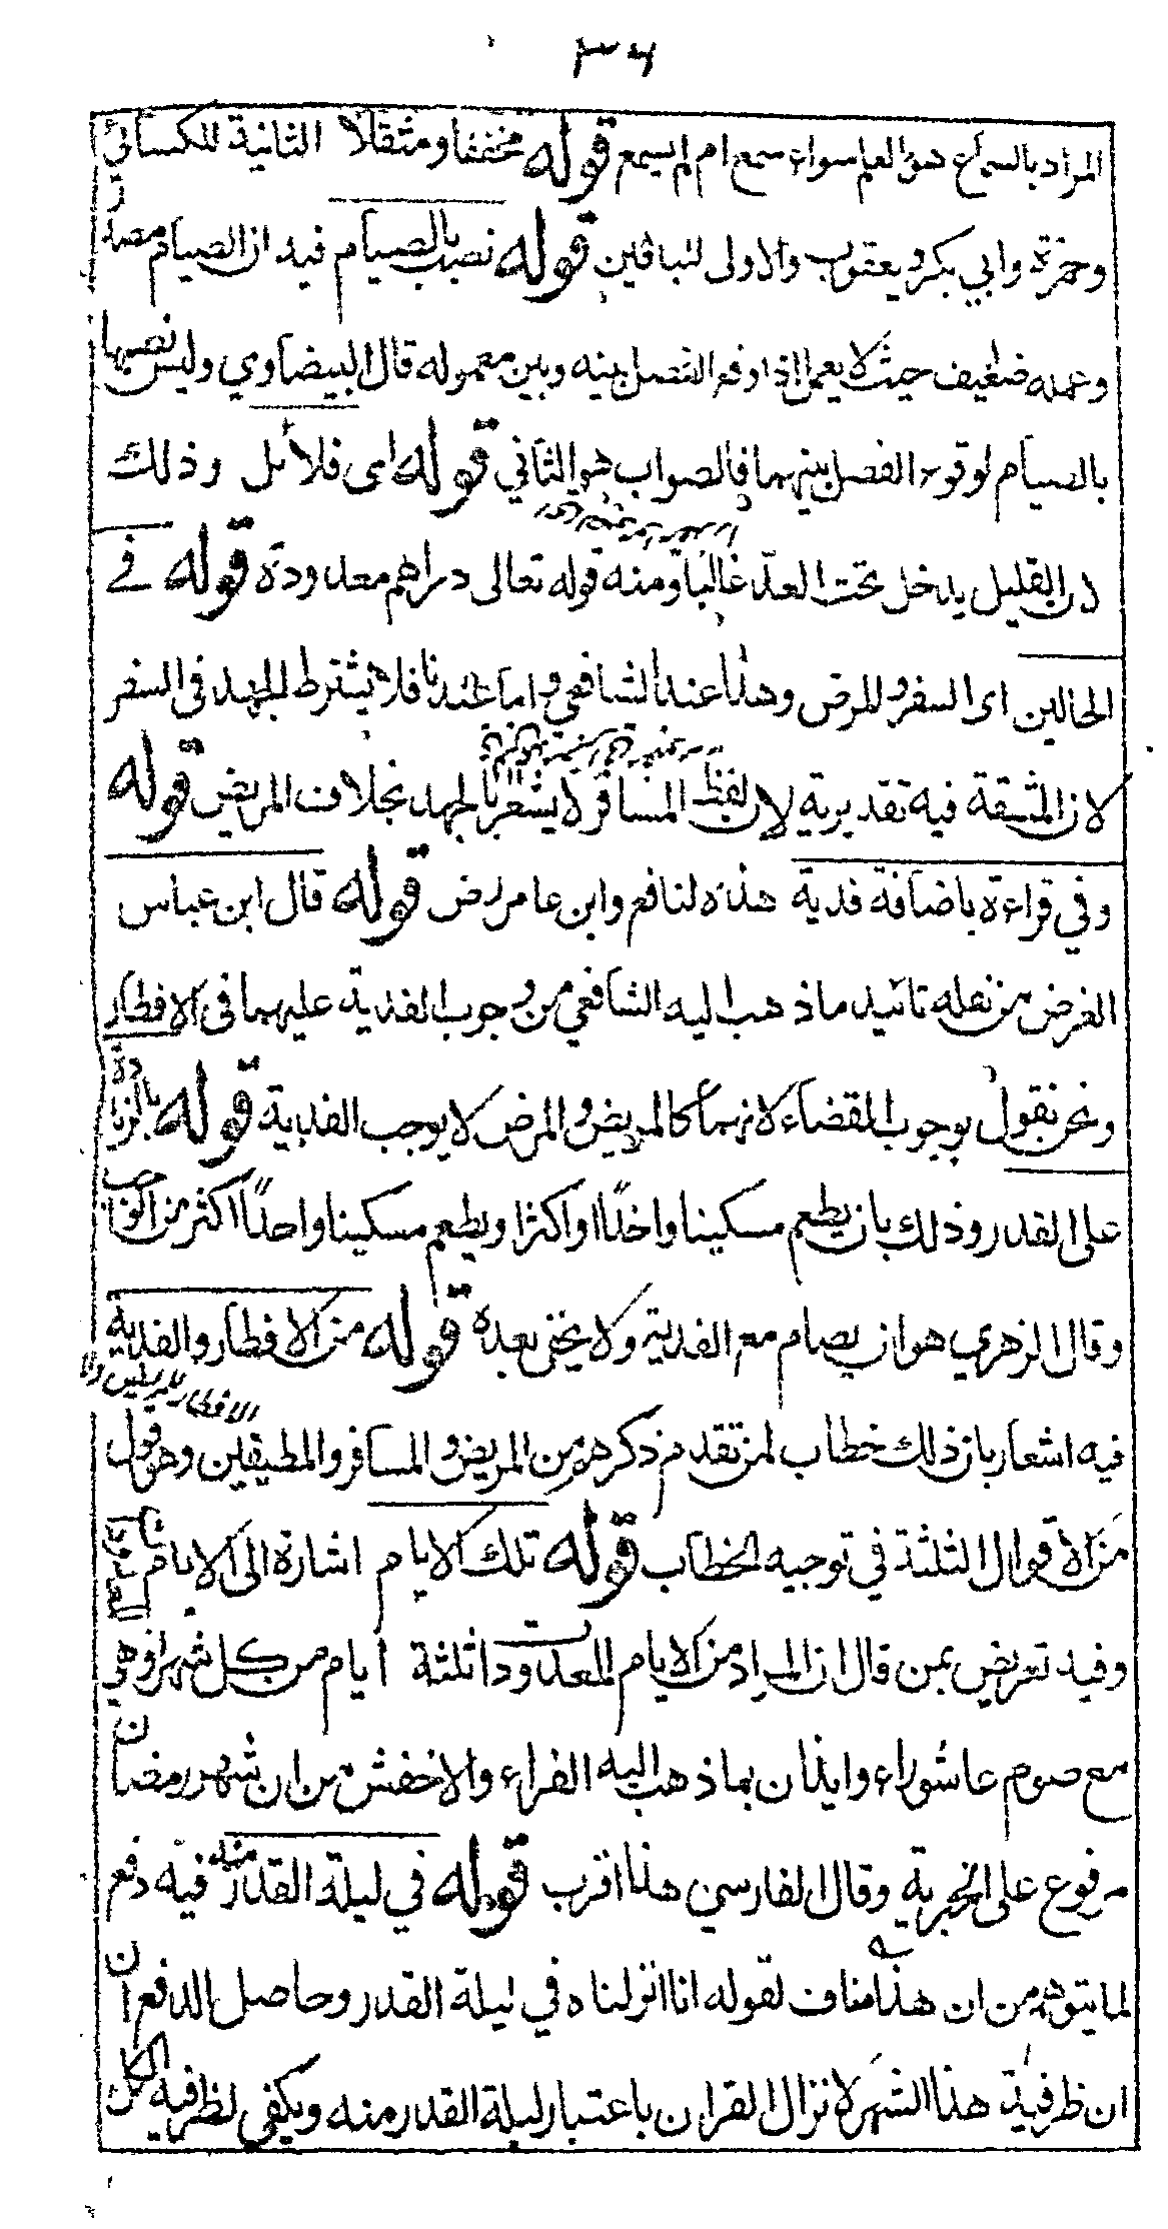 ٣٦
المراد بالسماع هو العلم سواء سمع ام لم يسمع قوله مخففا ومثقلا الثانية للكسائي
وحمزة وابي بكر ويعقوب والاولى للباقين قوله نصب بالصيام فيه ان الصيام مصدر
وعمله ضعيف حيث لا يعمل اذا وقع الفصل بينه وبين معموله قال البيضاوي وليس نصبها
بالصيام لوقوع الفصل بينهما فالصواب هو الثاني قوله اى قلائل وذلك
لان القليل يدخل تحت العدّ غالبا ومنه قوله تعالى دراهم معدودة قوله في
الحالين اى السفر والمرض وهذا عند الشافعي واما عندنا فلا يشترط الجهد في السفر
لان المشقة فيه تقديرية لان لفظ المسافر لا يشعر بالجهد بخلاف المريض قوله
وفي قراءة باضافة فدية هذه لنافع وابن عامر رض قوله قال ابن عباس
الغرض من نقله تائيد ما ذهب اليه الشافعي من وجوب الفدية عليهما فى الافطار
ونحن نقول بوجوب القضاء لانهما كالمريض والمرض لا يوجب الفدية قوله بالزيادة
على القدر وذلك بان يطعم مسكينا واحدًا او اكثر او يطعم مسكينا واحدًا اكثر من
وقال الزهري هو ان يصام مع الفدية ولا يخفى بعده قوله من الافطار والفدية
فيه اشعار بان ذلك خطاب لمن تقدم ذكرهم من المريض والمسافر والمطيقين وهو قول
من الاقوال الثلثة في توجيه الخطاب قوله تلك الايام اشارة الى الايام
وفيه تعريض بمن قال ان المراد من الايام المعدودات ثلثة ايام من كل شهر او هي
مع صوم عاشوراء وايذان بما ذهب اليه الفراء والاخفش من ان شهر رمضان
مرفوع على الخبرية وقال الفارسي هذا اقرب قوله في ليلة القدر منه فيه دفع
لما يتوهم من ان هذا مناف لقوله انا انزلناه في ليلة القدر وحاصل الدفع ان
ان ظرفية هذا الشهر لانزال القران باعتبار ليلة القدر منه ويكفي لظرفية الكل